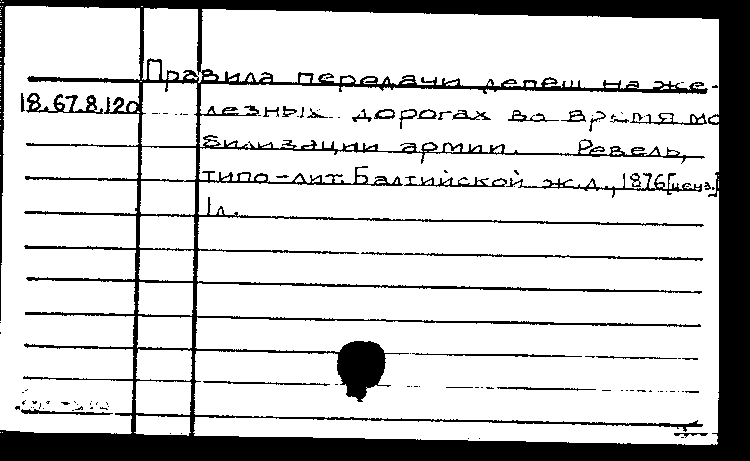 Правила передачи депеш на же-
18.67.8.120 лезных дорогах во время мо
билизации армии. Ревель,
типо-лит. Балтийской ж.д., 1876[ценз.]
1л.